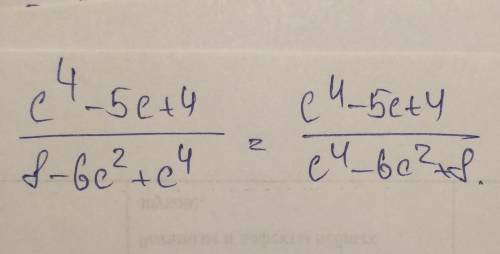 (c⁴-5c+4)/(8-6c²+c⁴) = (c⁴-5c+4)/(c⁴-6c²+8).